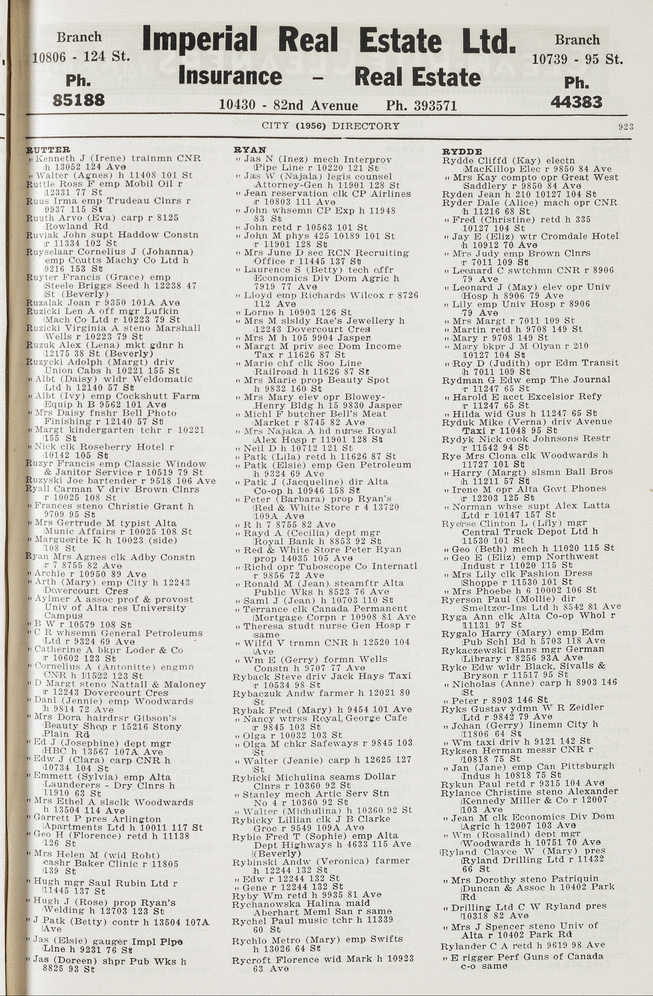 Branch
10806 - 124 St.
Ph.
85188
Imperial Real Estate Ltd.
Insurance – Real Estate
10430 - 82nd Avenue Ph. 393571
Branch
10739 - 95 St.
Ph.
44383
CITY (1956) DIRECTORY
923
RUTTER
" Kenneth J (Irene) trainmn CNR
h 13052 124 Ave
" Walter (Agnes) h 11408 101 St
Ruttle Ross F emp Mobil Oil r
12331 77 St
Ruus Irma emp Trudeau Clnrs r
9937 115 St
Ruuth Arvo (Eva) carp r 8125
Rowland Rd
Ruviak John supt Haddow Constn
r 11334 102 St
Ruyselaar Cornelius J (Johanna)
emp Coutts Machy Co Ltd h
9216 153 St
Ruyter Francis (Grace) emp
Steele Briggs Seed h 12238 47
St (Beverly)
Ruzalak Joan r 9350 101A Ave
Ruzicki Len A off mgr Lufkin
Mach Co Ltd r 10223 79 St
Ruzicki Virginia A steno Marshall
Wells r 10223 79 St
Ruzuk Alex (Lena) mkt gdnr h
12175 38 St (Beverly)
Ruzycki Adolph (Margt) driv
Union Cabs h 10221 155 St
" Albt (Daisy) wldr Weldomatic
Ltd h 12140 57 St
" Albt (Ivy) emp Cockshutt Farm
Equip h B 9562 101 Ave
" Mrs Daisy fnshr Bell Photo
Finishing r 12140 57 St
" Margt kindergarten tchr r 10221
155 St
" Nick clk Roseberry Hotel r
10142 105 St
Ruzyr Francis emp Classic Window
& Janitor Service r 10519 79 St
Ruzyski Joe bartender r 9518 106 Ave
Ryall Carman V driv Brown Clnrs
r 10025 108 St
" Frances steno Christie Grant h
9709 95 St
" Mrs Gertrude M typist Alta
Munic Affairs r 10025 108 St
" Marguerite K h 10023 (side)
108 St
Ryan Mrs Agnes clk Adby Constn
r 7 8755 82 Ave
" Archie r 10950 89 Ave
" Arth (Mary) emp City h 12243
Dovercourt Cres
" Aylmer A assoc prof & provost
Univ of Alta res University
Campus
" B W r 10579 108 St
" C R whsemn General Petroleums
Ltd r 9324 69 Ave
" Catherine A bkpr Loder & Co
r 10602 123 St
" Cornelius A (Antonitte) engmn
CNR h 11522 123 St
" D Margt steno Nattall & Maloney
r 12243 Dovercourt Cres
" Danl (Jennie) emp Woodwards
h 9814 72 Ave
" Mrs Dora hairdrsr Gibson's
Beauty Shop r 15216 Stony
Plain Rd
" Ed J (Josephine) dept mgr
HBC h 13567 107A Ave
" Edw J (Clara) carp CNR h
10734 104 St
" Emmett (Sylvia) emp Alta
Launderers - Dry Clnrs h
11910 63 St
" Mrs Ethel A slsclk Woodwards
h 13504 114 Ave
" Garrett P pres Arlington
Apartments Ltd h 10011 117 St
" Geo H (Florence) retd h 11138
126 St
" Mrs Helen M (wid Robt)
cashr Baker Clinic r 11805
139 St
" Hugh mgr Saul Rubin Ltd r
11445 137 St
" Hugh J (Rose) prop Ryan's
Welding h 12703 123 St
" J Patk (Betty) contr h 13504 107A
Ave
" Jas (Elsie) gauger Impl Pipe
Line h 9231 76 St
" Jas (Doreen) shpr Pub Wks h
8825 93 St
RYAN
" Jas N (Inez) mech Interprov
Pipe Line r 10220 121 St
" Jas W (Najala) legis counsel
Attorney-Gen h 11901 128 St
" Jean reservation clk CP Airlines
r 10803 111 Ave
" John whsemn CP Exp h 11948
83 St
" John retd r 10563 101 St
" John M phys 425 10189 101 St
r 11901 128 St
" Mrs June D sec RCN Recruiting
Office r 11445 137 St
" Laurence S (Betty) tech offr
Economics Div Dom Agric h
7919 77 Ave
" Lloyd emp Richards Wilcox r 8726
112 Ave
" Lorne h 10903 126 St
" Mrs M slsldy Rae's Jewellery h
12243 Dovercourt Cres
" Mrs M h 105 9904 Jasper
" Margt M priv sec Dom Income
Tax r 11626 87 St
" Marie chf clk Soo Line
Railroad h 11626 87 St
" Mrs Marie prop Beauty Spot
h 9832 160 St
" Mrs Mary elev opr Blowey-
Henry Bldg h 15 9830 Jasper
" Michl F butcher Bell's Meat
Market r 8745 82 Ave
" Mrs Najaka A hd nurse Royal
Alex Hosp r 11901 128 St
" Neil D h 10712 121 St
" Patk (Lila) retd h 11626 87 St
" Patk (Elsie) emp Gen Petroleum
h 9324 69 Ave
" Patk J (Jacqueline) dir Alta
Co-op h 10946 158 St
" Peter (Barbara) prop Ryan's
Red & White Store r 4 13720
109A Ave
" R h 7 8755 82 Ave
" Rayd A (Cecilia) dept mgr
Royal Bank h 8853 92 St
" Red & White Store Peter Ryan
prop 14035 105 Ave
" Richd opr Tuboscope Co Internatl
r 9856 72 Ave
" Ronald M (Jean) steamftr Alta
Public Wks h 8523 76 Ave
" Saml J (Jean) h 10703 110 St
" Terrance clk Canada Permanent
Mortgage Corpn r 10908 81 Ave
" Theresa studt nurse Gen Hosp r
same
" Wilfd V trnmn CNR h 12520 104
Ave
" Wm E (Gerry) formn Wells
Constn h 9707 77 Ave
Ryback Steve driv Jack Hays Taxi
r 10534 98 St
Rybaczuk Andw farmer h 12021 80
St
Rybak Fred (Mary) h 9454 101 Ave
" Nancy wtrss Royal George Cafe
r 9845 103 St
" Olga r 10032 103 St
" Olga M chkr Safeways r 9845 103
St
" Walter (Jeanie) carp h 12625 127
St
Rybicki Michulina seams Dollar
Clnrs r 10360 92 St
" Stanley mech Artic Serv Stn
No 4 r 10360 92 St
" Walter (Michulina) h 10360 92 St
Rybicky Lillian clk J B Clarke
Groc r 9549 109A Ave
Rybie Fred T (Sophie) emp Alta
Dept Highways h 4633 115 Ave
(Beverly)
Rybinski Andw (Veronica) farmer
h 12244 132 St
" Edw r 12244 132 St
" Gene r 12244 132 St
Ryby Wm retd h 9935 81 Ave
Rychanowska Halina maid
Aberhart Meml San r same
Rychel Paul music tchr h 11339
60 St
Rychlo Metro (Mary) emp Swifts
h 13026 64 St
Rycroft Florence wid Mark h 10923
63 Ave
RYDDE
Rydde Cliffd (Kay) electn
MacKillop Elec r 9850 84 Ave
" Mrs Kay compto opr Great West
Saddlery r 9850 84 Ave
Ryden Jean h 210 10127 104 St
Ryder Dale (Alice) mach opr CNR
h 11216 68 St
" Fred (Christine) retd h 335
10127 104 St
" Jay E (Eliz) wtr Cromdale Hotel
h 10912 70 Ave
" Mrs Judy emp Brown Clnrs
r 7011 109 St
" Leonard C swtchmn CNR r 8906
79 Ave
" Leonard J (May) elev opr Univ
Hosp h 8906 79 Ave
" Lily emp Univ Hosp r 8906
79 Ave
" Mrs Margt r 7011 109 St
" Martin retd r 9708 149 St
" Mary r 9708 149 St
" Mary bkpr J M Olyan r 210
10127 104 St
" Roy D (Judith) opr Edm Transit
h 7011 109 St
Rydman G Edw emp The Journal
r 11247 65 St
" Harold E acct Excelsior Refy
r 11247 65 St
" Hilda wid Gus h 11247 65 St
Ryduk Mike (Verna) driv Avenue
Taxi r 11048 95 St
Rydyk Nick cook Johnsons Restr
r 11542 94 St
Rye Mrs Clona clk Woodwards h
11727 101 St
" Harry (Margt) slsmn Ball Bros
h 11211 57 St
" Irene M opr Alta Govt Phones
r 12203 125 St
" Norman whse supt Alex Latta
Ltd r 10147 157 St
Ryerse Clinton L (Lily) mgr
Central Truck Depot Ltd h
11530 101 St
" Geo (Beth) mech h 11020 115 St
" Geo E (Eliz) emp Northwest
Indust r 11020 115 St
" Mrs Lily clk Fashion Dress
Shoppe r 11530 101 St
" Mrs Phoebe h 6 10002 106 St
Ryerson Paul (Mollie) dir
Smeltzer-Ins Ltd h 8542 81 Ave
Ryga Ann clk Alta Co-op Whol r
11131 97 St
Rygalo Harry (Mary) emp Edm
Pub Schl Bd h 5703 118 Ave
Rykaczewski Hans mgr German
Library r 8256 93A Ave
Ryke Edw wldr Black, Sivalls &
Bryson r 11517 95 St
" Nicholas (Anne) carp h 8903 146
St
" Peter r 8903 146 St
Ryks Gustav ydmn W R Zeidler
Ltd r 9842 79 Ave
" Johan (Gerry) linemn City h
11806 64 St
" Wm taxi driv h 9121 142 St
Ryksen Herman messr CNR r
10818 75 St
" Jan (Jane) emp Can Pittsburgh
Indus h 10818 75 St
Rykun Paul retd r 9315 104 Ave
Rylance Christine steno Alexander
Kennedy Miller & Co r 12007
103 Ave
" Jean M clk Economics Div Dom
Agric h 12007 103 Ave
" Wm (Rosalind) dept mgr
Woodwards h 10751 70 Ave
Ryland Clayce W (Mary) pres
Ryland Drilling Ltd r 11432
66 St
" Mrs Dorothy steno Patriquin
Duncan & Assoc h 10402 Park
Rd
" Drilling Ltd C W Ryland pres
10318 82 Ave
" Mrs J Spencer steno Univ of
Alta r 10402 Park Rd
Rylander C A retd h 9619 98 Ave
" E rigger Perf Guns of Canada
c-o same